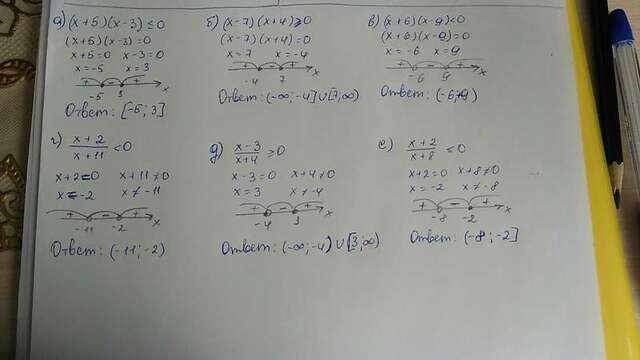 а) (x+5)(x-3) ≤ 0
(x+5)(x-3) = 0
x+5=0 x-3=0
x=-5 x=3
+ - +
-5 3 x
Ответ: [-5; 3]
б) (x-7)(x+4) ≥ 0
(x-7)(x+4)=0
x=7 x=-4
+ - +
-4 7 x
Ответ: (-∞; -4] ∪ [7; ∞)
в) (x+6)(x-9) < 0
(x+6)(x-9)=0
x=-6 x=9
+ - +
-6 9 x
Ответ: (-6; 9)
г) x+2 / x+11 < 0
x+2=0 x+11≠0
x=-2 x≠-11
+ - +
-11 -2 x
Ответ: (-11; -2)
д) x-3 / x+4 ≥ 0
x-3=0 x+4≠0
x=3 x≠-4
+ - +
-4 3 x
Ответ: (-∞; -4) ∪ [3; ∞)
е) x+2 / x+8 ≤ 0
x+2=0 x+8≠0
x=-2 x≠-8
+ - +
-8 -2 x
Ответ: (-8; -2]